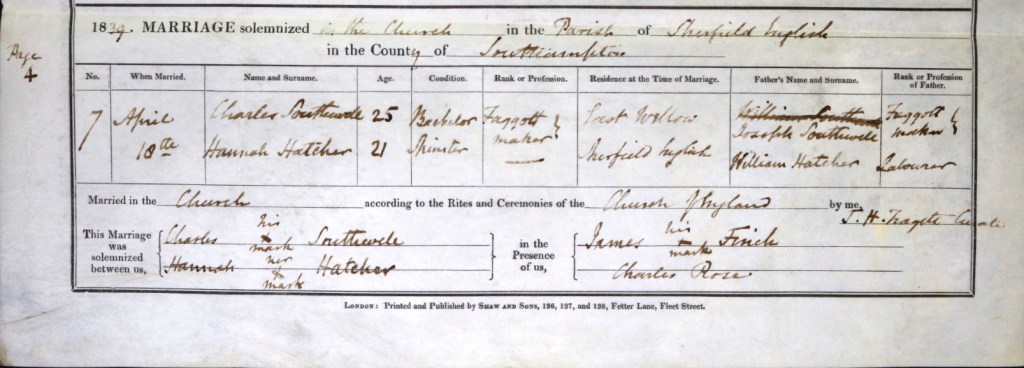 1839. MARRIAGE solemnized in the Church in the Parish of Sherfield English
Page 4
in the County of Southampton
No. When Married. Name and Surname. Age. Condition. Rank or Profession. Residence at the Time of Marriage. Father's Name and Surname. Rank or Profession of Father.
7 April Charles Southwell 25 Bachelor Faggott maker East Wellow William Southwell Joseph Southwell Faggott maker
18th Hannah Hatcher 21 Spinster — Sherfield English William Hatcher Labourer
Married in the Church according to the Rites and Ceremonies of the Church of England by me, T. H. Tragett Curate
This Marriage was solemnized between us, Charles his mark Southwell in the Presence of us, James his mark Finch
Hannah her mark Hatcher Charles Rose
LONDON: Printed and Published by SHAW AND SONS, 136, 137, and 138, Fetter Lane, Fleet Street.